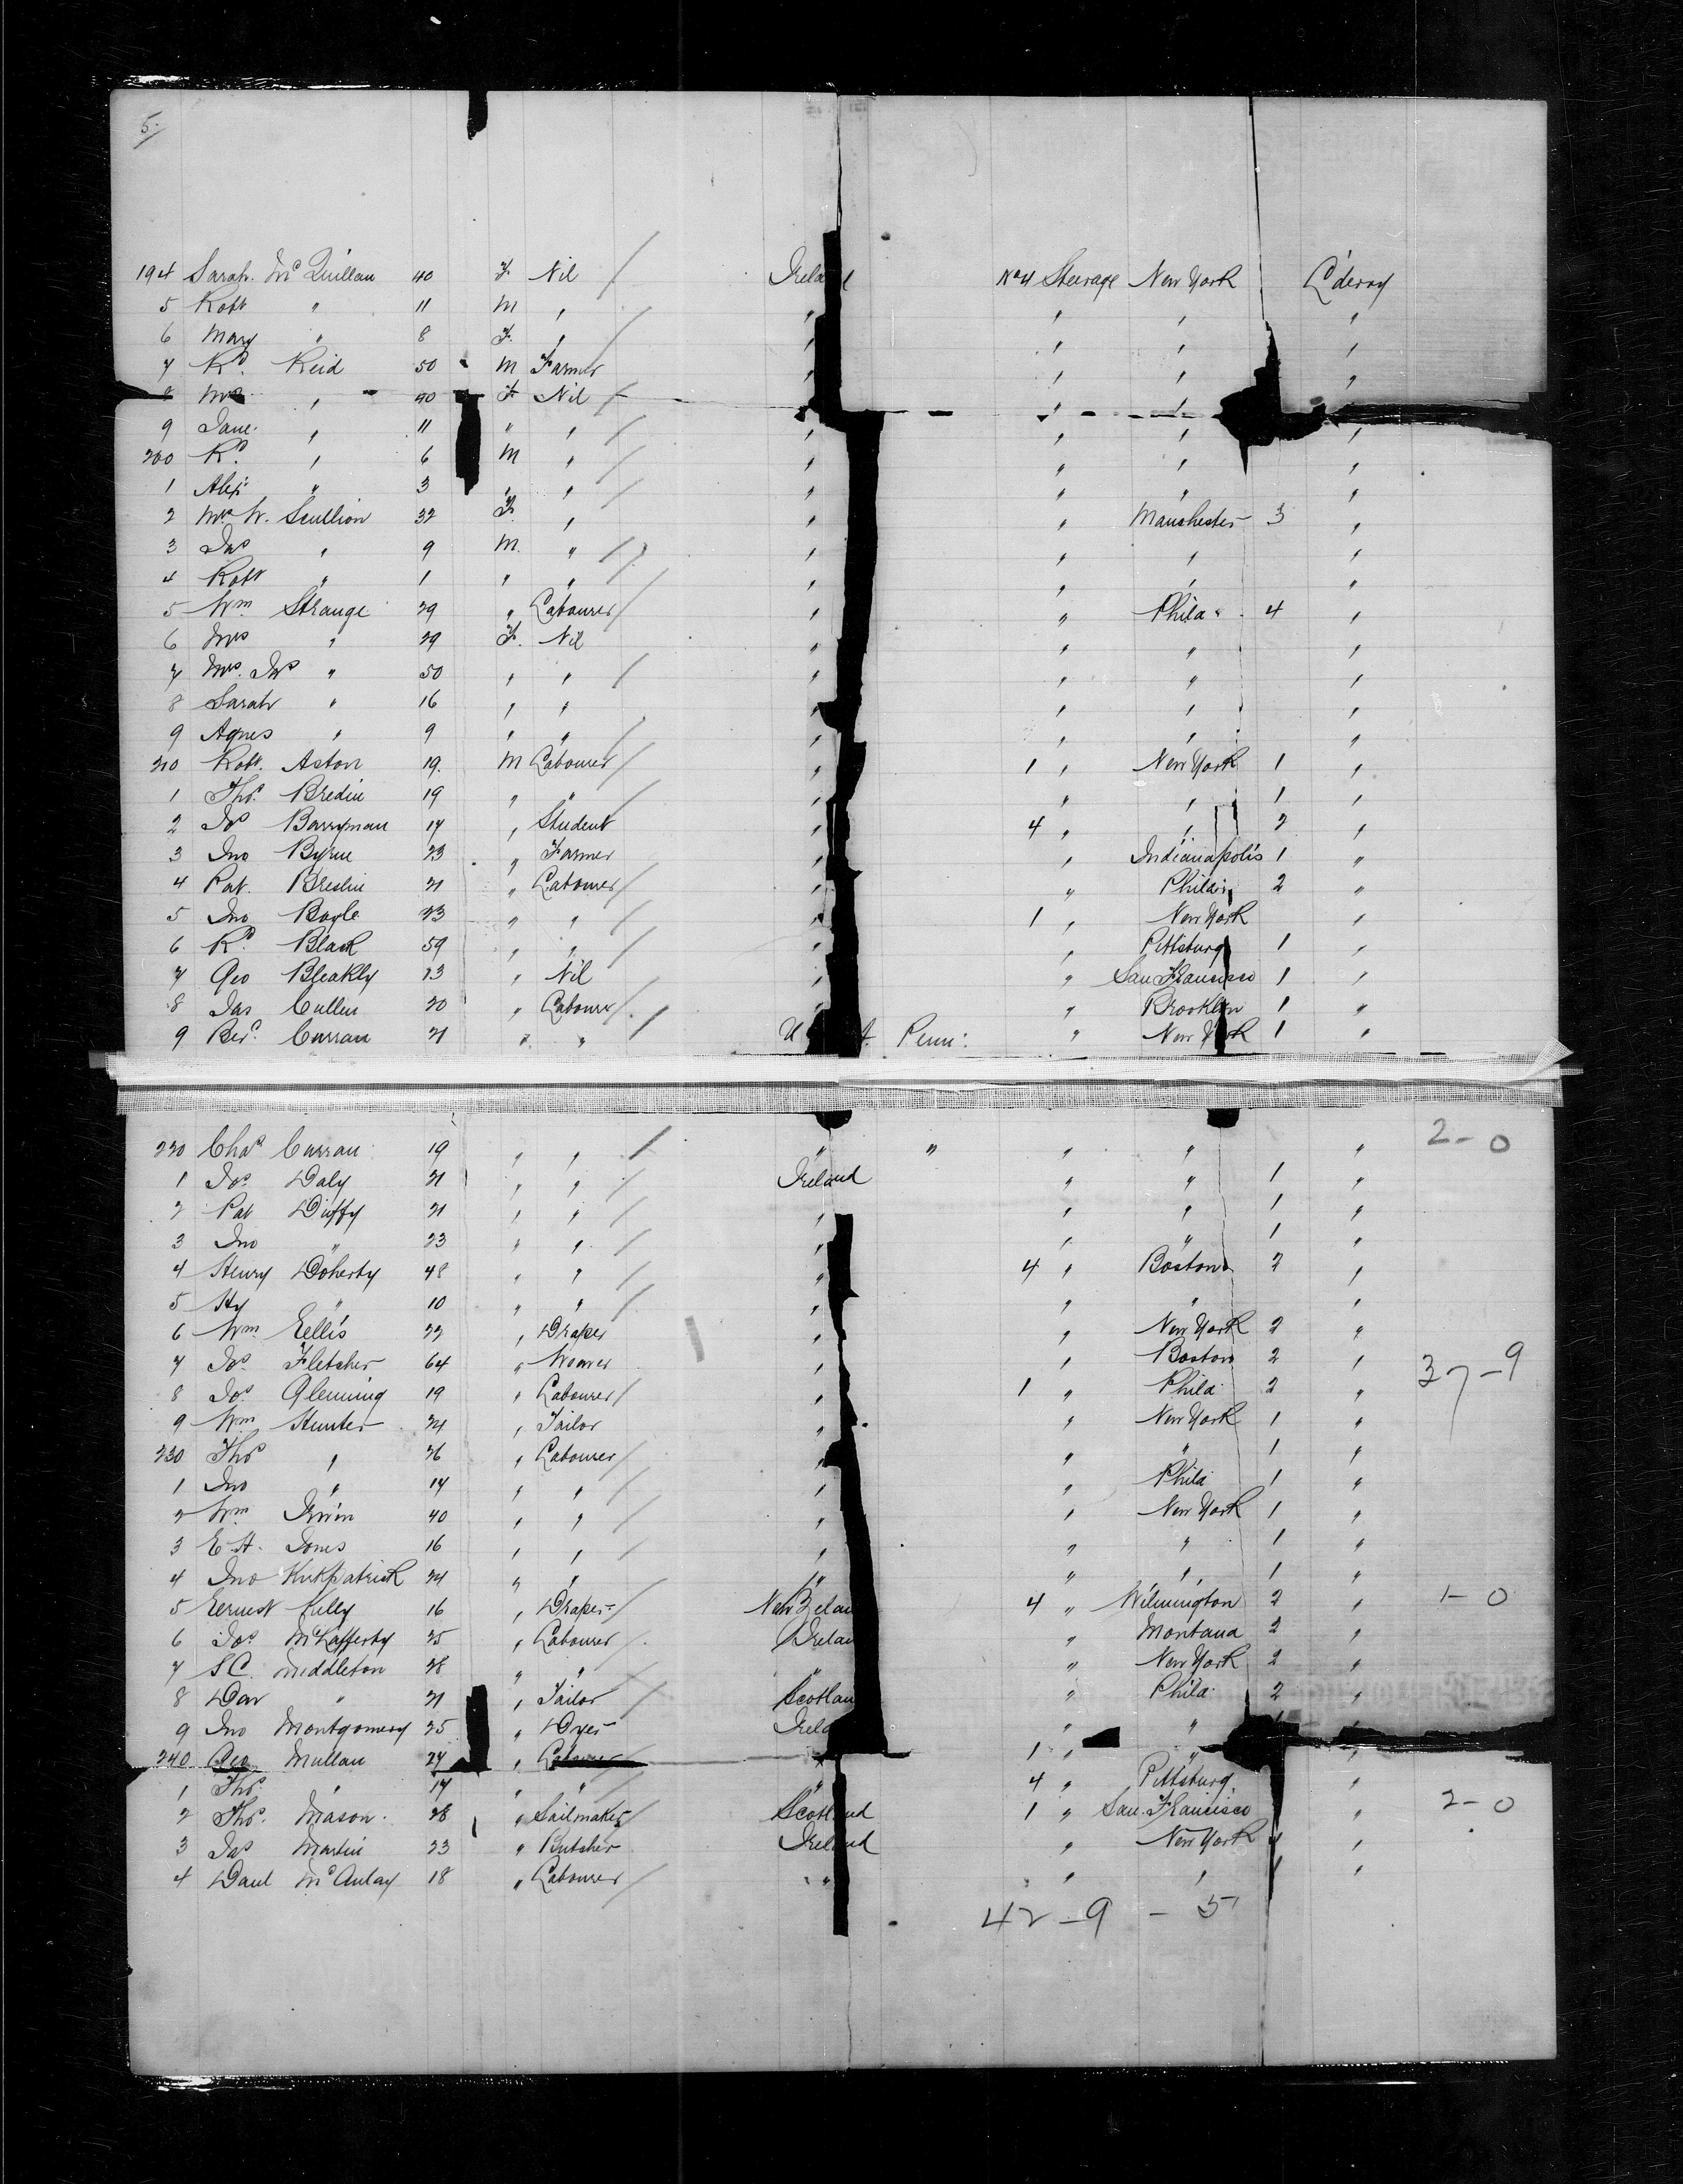 5.
194 Sarah Mc Quillan 40 F Nil / Ireland No 4 Steerage New York L'derry
5 Robt " 11 M " " " " "
6 Mary " 8 F. " / " " " "
7 Rd. Reid 50 M Farmer " " " "
8 Mrs " 40 F Nil / " " "
9 Jane " 11 " " / " " " "
200 Rd. " 6 M " / " " " "
1 Alex " 3 " " / " " " "
2 Mrs W. Scullion 32 F. " " " Manchester 3 "
3 Jas " 9 M. " / " " " "
4 Robt " 1 " " " " " "
5 Wm Strange 29 " Labourer / " " Phila 4 "
6 Mrs " 29 F. Nil " " " "
7 Mrs. Jas " 50 " " / " " " "
8 Sarah " 16 " " " " " "
9 Agnes " 9 " " / " " " "
210 Robt. Aston 19. M Labourer / " 1 " New York 1 "
1 Thos. Bredin 19 " " / " " " 1 "
2 Jos Barryman 17 " Student " 4 " " 2 "
3 Jno Byrne 23 " Farmer " " Indianapolis 1 "
4 Pat. Breslin 21 " Labourer / " " Phila 2 "
5 Jno Boyle 23 " " / " 1 " New York "
6 Rd. Black 59 " " / " " Pittsburg 1 "
7 Geo Bleakly 23 " Nil " " San Francisco 1 "
8 Jas Cullen 20 " Labourer / " " Brooklyn 1 "
9 Bed. Curran 21 " " / U A. Penn: " New York 1 "
220 Chas Curran 19 " " / " " " " " 2-0
1 Jos. Daly 21 " " / Ireland " " 1 "
2 Pat Duffy 21 " " / " " " 1 "
3 Jno " 23 " " / " " " 1 "
4 Henry Doherty 48 " " / " 4 " Boston 2 "
5 Hy " 10 " " / " " " "
6 Wm Ellis 22 " Draper " " New York 2 "
7 Jos. Fletcher 64 " Weaver " " Boston 2 " 37-9
8 Jos Glenning 19 " Labourer / " 1 " Phila 2 "
9 Wm Hunter 24 " Tailor " " New York 1 "
230 Thos " 26 " Labourer / " " " 1 "
1 Jno " 17 " " / " " Phila 1 "
2 Wm Irwin 40 " " / " " New York 1 "
3 E. H. Jones 16 " " / " " " 1 "
4 Jno Kirkpatrick 24 " " " " " 1 "
5 Ernest Kelly 16 " Draper / New Zelan 4 " Wilmington 2 " 1-0
6 Jos. McLafferty 25 " Labourer / Irelan " Montana 2 "
7 S C. Middleton 28 " " " " New York 2 "
8 Dav " 21 " Tailor / Scotlan " Phila 2 "
9 Jno Montgomery 25 " Dyer Irela " "
240 Geo Mullan 27 " Labourer 1 " " "
1 Thos " 17 " " / " 4 " Pittsburg "
2 Thos. Mason 28 " Sailmaker / Scotland 1 " San Francisco " 2-0
3 Jas Martin 23 " Butcher Ireland " New York "
4 Danl McAulay 18 " Labourer / " " " 1 "
42-9-5